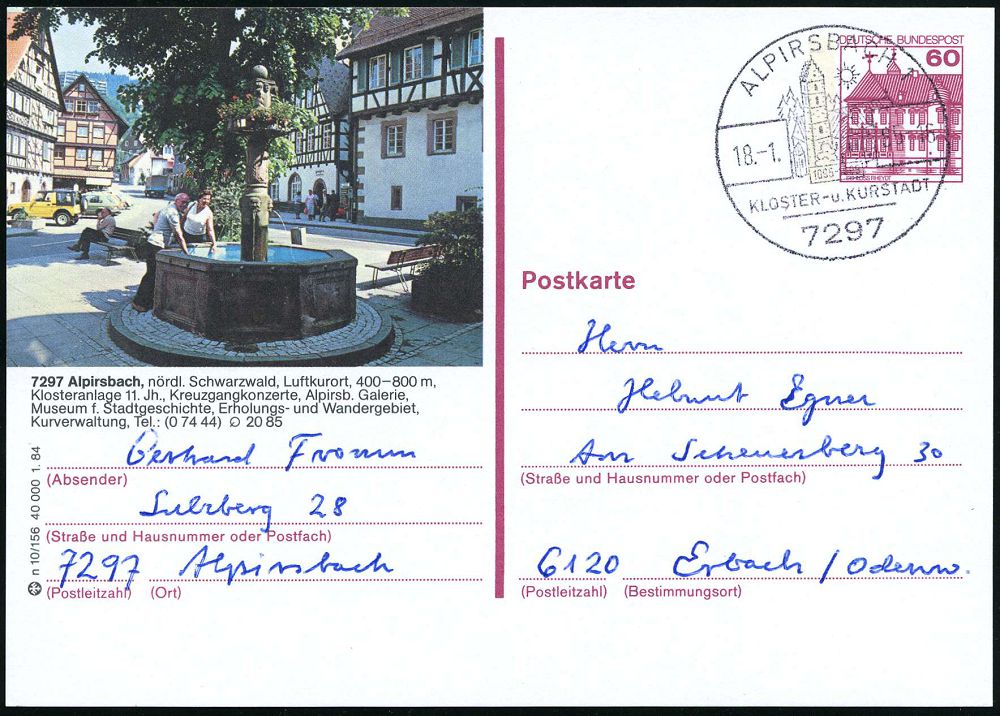 7297 Alpirsbach, nördl. Schwarzwald, Luftkurort, 400–800 m,
Klosteranlage 11. Jh., Kreuzgangkonzerte, Alpirsb. Galerie,
Museum f. Stadtgeschichte, Erholungs- und Wandergebiet,
Kurverwaltung, Tel.: (0 74 44) ✆ 20 85
Gerhard Fromm
(Absender)
Sulzberg 28
(Straße und Hausnummer oder Postfach)
7297 Alpirsbach
(Postleitzahl) (Ort)
n 10/156 40 000 1. 84
DEUTSCHE BUNDESPOST
60
SCHLOSS RHEYDT
ALPIRSBACH 1
18.-1.
1095
KLOSTER-u. KURSTADT
7297
Postkarte
Herrn
Helmut Egner
Am Scheuerberg 30
(Straße und Hausnummer oder Postfach)
6120 Erbach / Odenw.
(Postleitzahl) (Bestimmungsort)